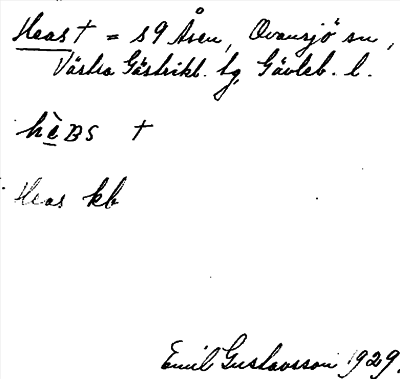 Heas † = s9 Åsen, Ovansjö sn,
Västra Gästrikl. tg, Gävleb. l.
hèBS †
Heas kb
Emil Gustavsson 1929.